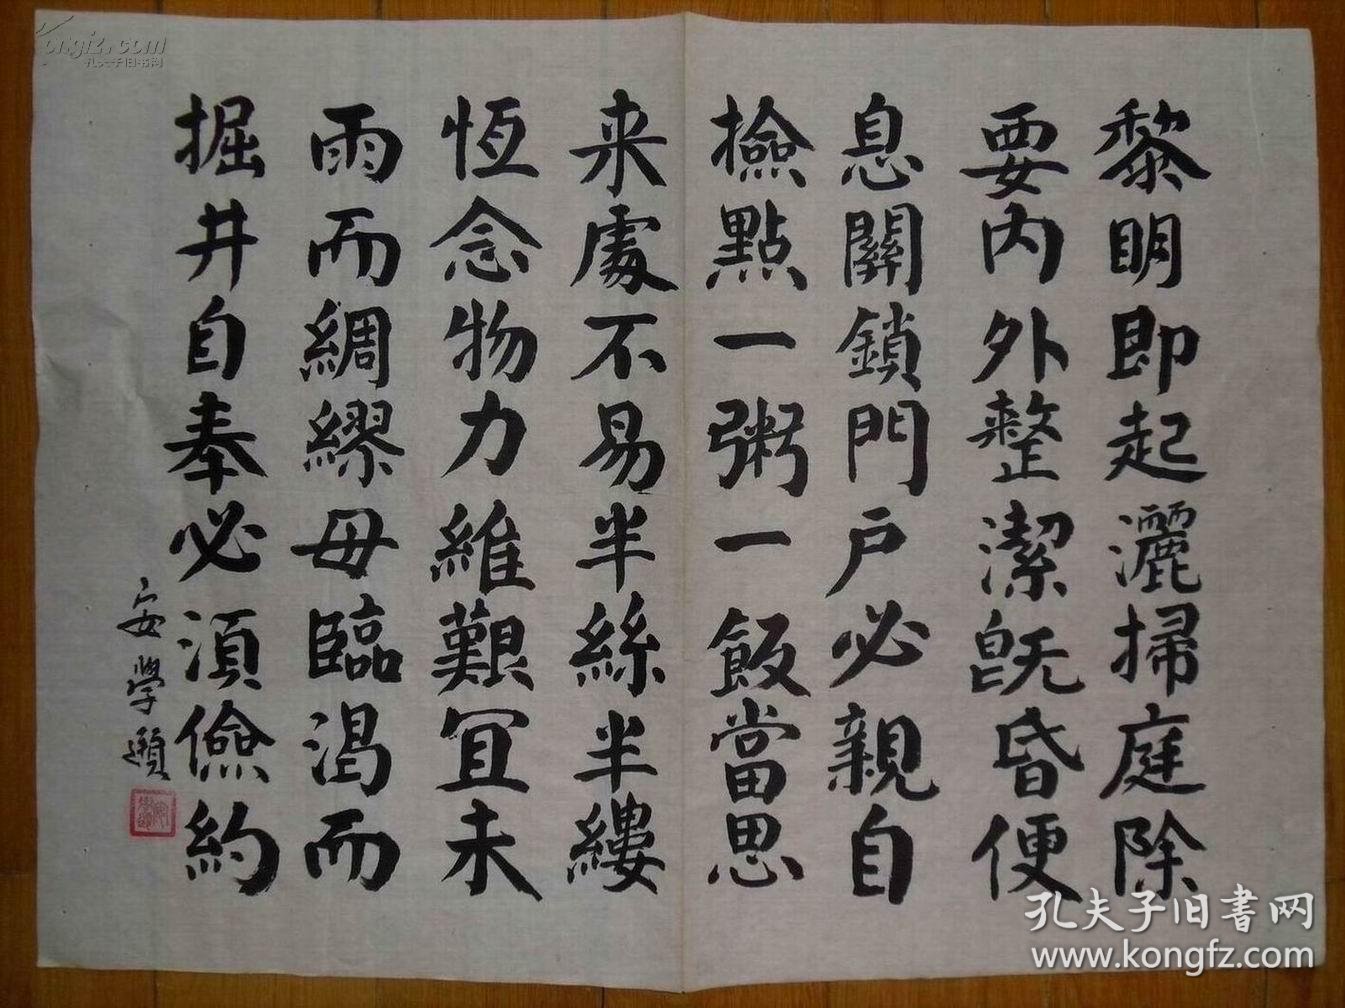 黎明即起灑掃庭除
要内外整潔既昏便
息關鎖門户必親自
撿點一粥一飯當思
来處不易半絲半縷
恆念物力維艱宜未
雨而綢繆毋臨渴而
掘井自奉必須儉約
安學
孔夫子旧书网
www.kongfz.com
孔夫子旧书网